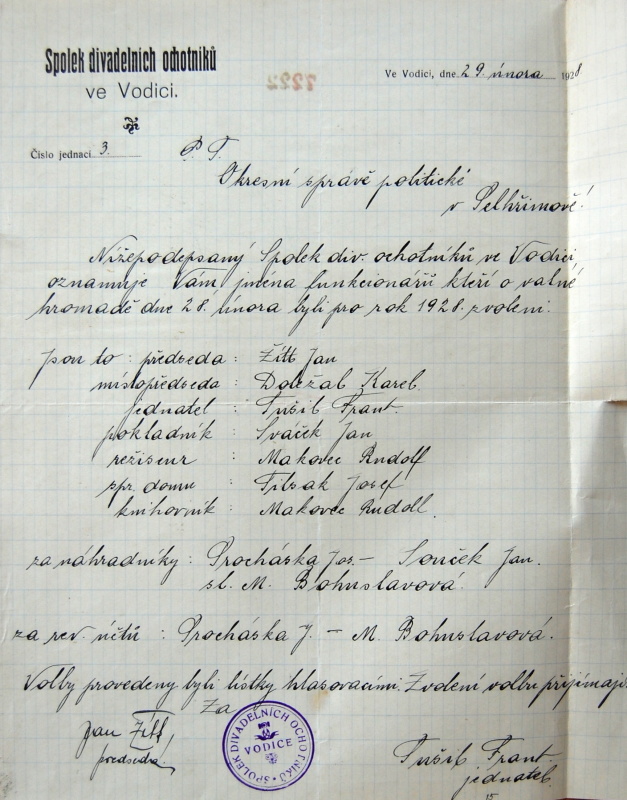 Spolek divadelních ochotníků
ve Vodici.
7222
Ve Vodici, dne 29. února 1928.
Číslo jednací 3.
P. T.
Okresní správě politické
v Pelhřimově!
Nížepodepsaný Spolek div. ochotníků ve Vodici,
oznamuje Vám jména funkcionářů kteří o valné
hromadě dne 28. února byli pro rok 1928. zvoleni.
Jsou to : předseda : Žítt Jan
místopředseda : Doležal Karel.
jednatel : Tušil Frant.
pokladník : Sváček Jan
režiseur : Makovec Rudolf
spr. domu : Josef
knihovník : Makovec Rudolf.
za náhradníky : Procháska Jos. – Souček Jan.
sl. M. Bohuslavová.
za rev. účtů : Procháska J. – M. Bohuslavová.
Volby provedeny byli lístky hlasovacími. Zvolení volbu přijímají.
Za
Jan Žítt
předseda
SPOLEK DIVADELNÍCH OCHOTNÍKŮ
VODICE
Tušil Frant.
jednatel.
15